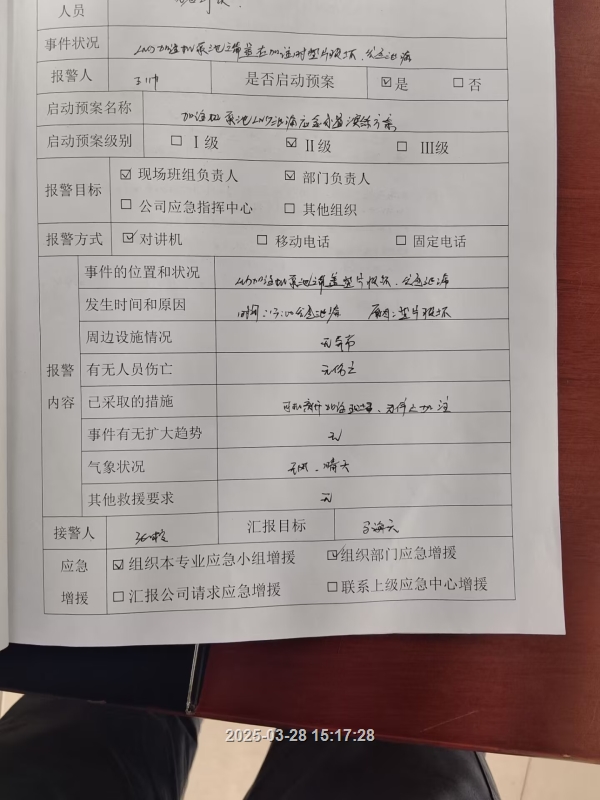 人员
事件状况 LNG加注机泵池
报警人 是否启动预案 ☑是 ☐否
启动预案名称 加注机泵池LNG泄漏应急
启动预案级别 ☐ Ⅰ级 ☑ Ⅱ级 ☐ Ⅲ级
报警目标 ☑ 现场班组负责人 ☑ 部门负责人
☐ 公司应急指挥中心 ☐ 其他组织
报警方式 ☑ 对讲机 ☐ 移动电话 ☐ 固定电话
报警内容
事件的位置和状况 LNG加注机泵池
发生时间和原因 时间: 原因:垫片损坏
周边设施情况 无异常
有无人员伤亡 无伤亡
已采取的措施 停止加注
事件有无扩大趋势 无
气象状况 晴天
其他救援要求 无
接警人 汇报目标
应急增援
☑ 组织本专业应急小组增援 ☑组织部门应急增援
☐ 汇报公司请求应急增援 ☐联系上级应急中心增援
2025-03-28 15:17:28